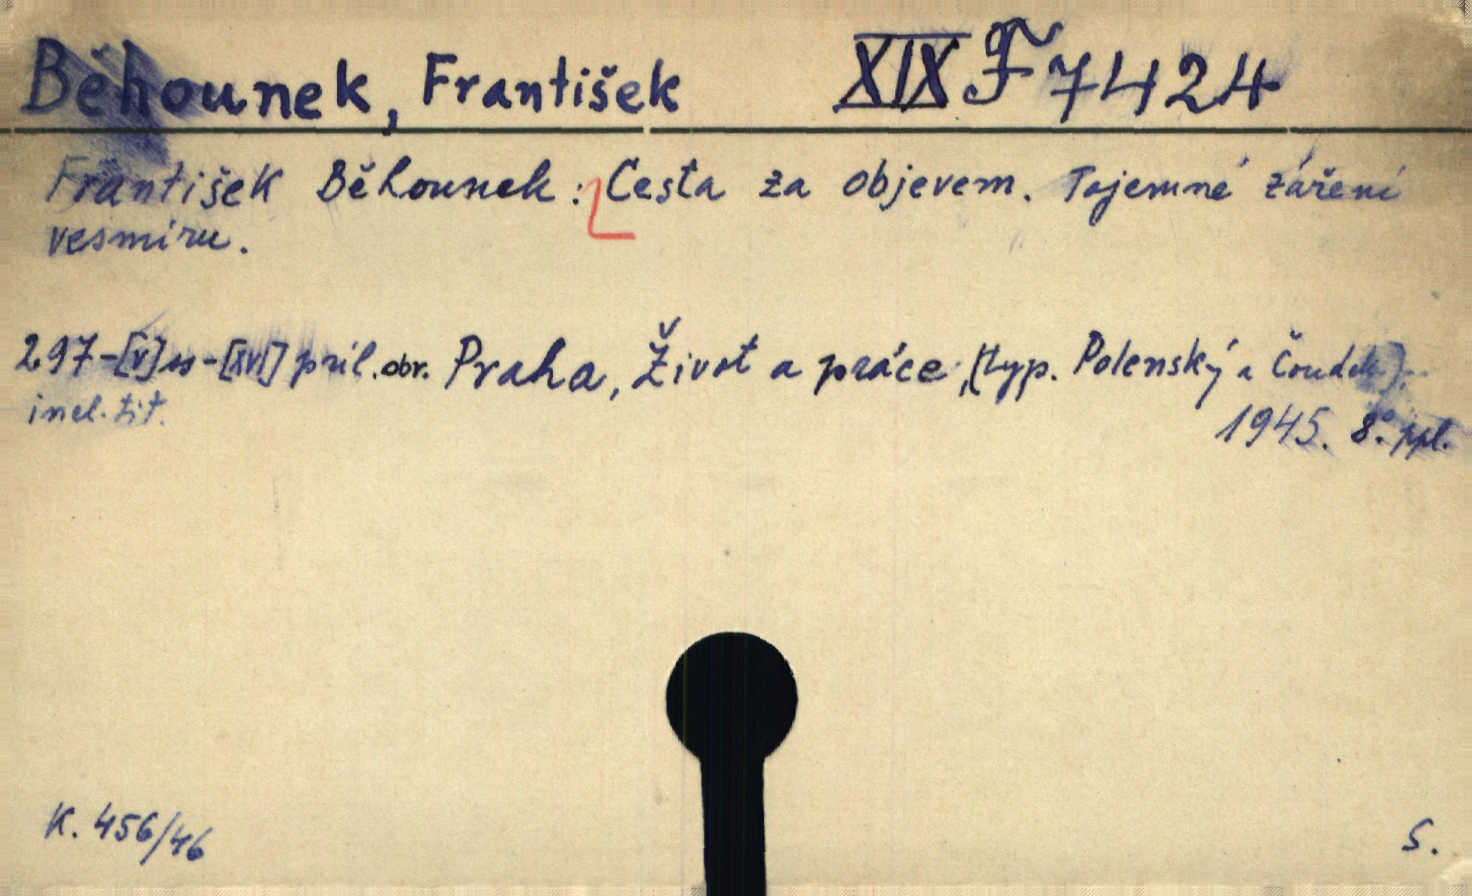 Běhounek, František XIX F 7424
František Běhounek: Cesta za objevem. Tajemné záření
vesmíru.
297-[V] ss-[XVI] příl. obr. Praha, Život a práce, [typ. Polenský a Čoudek].
incl. tit.
1945. 8°. ppl.
K. 456/46
S.